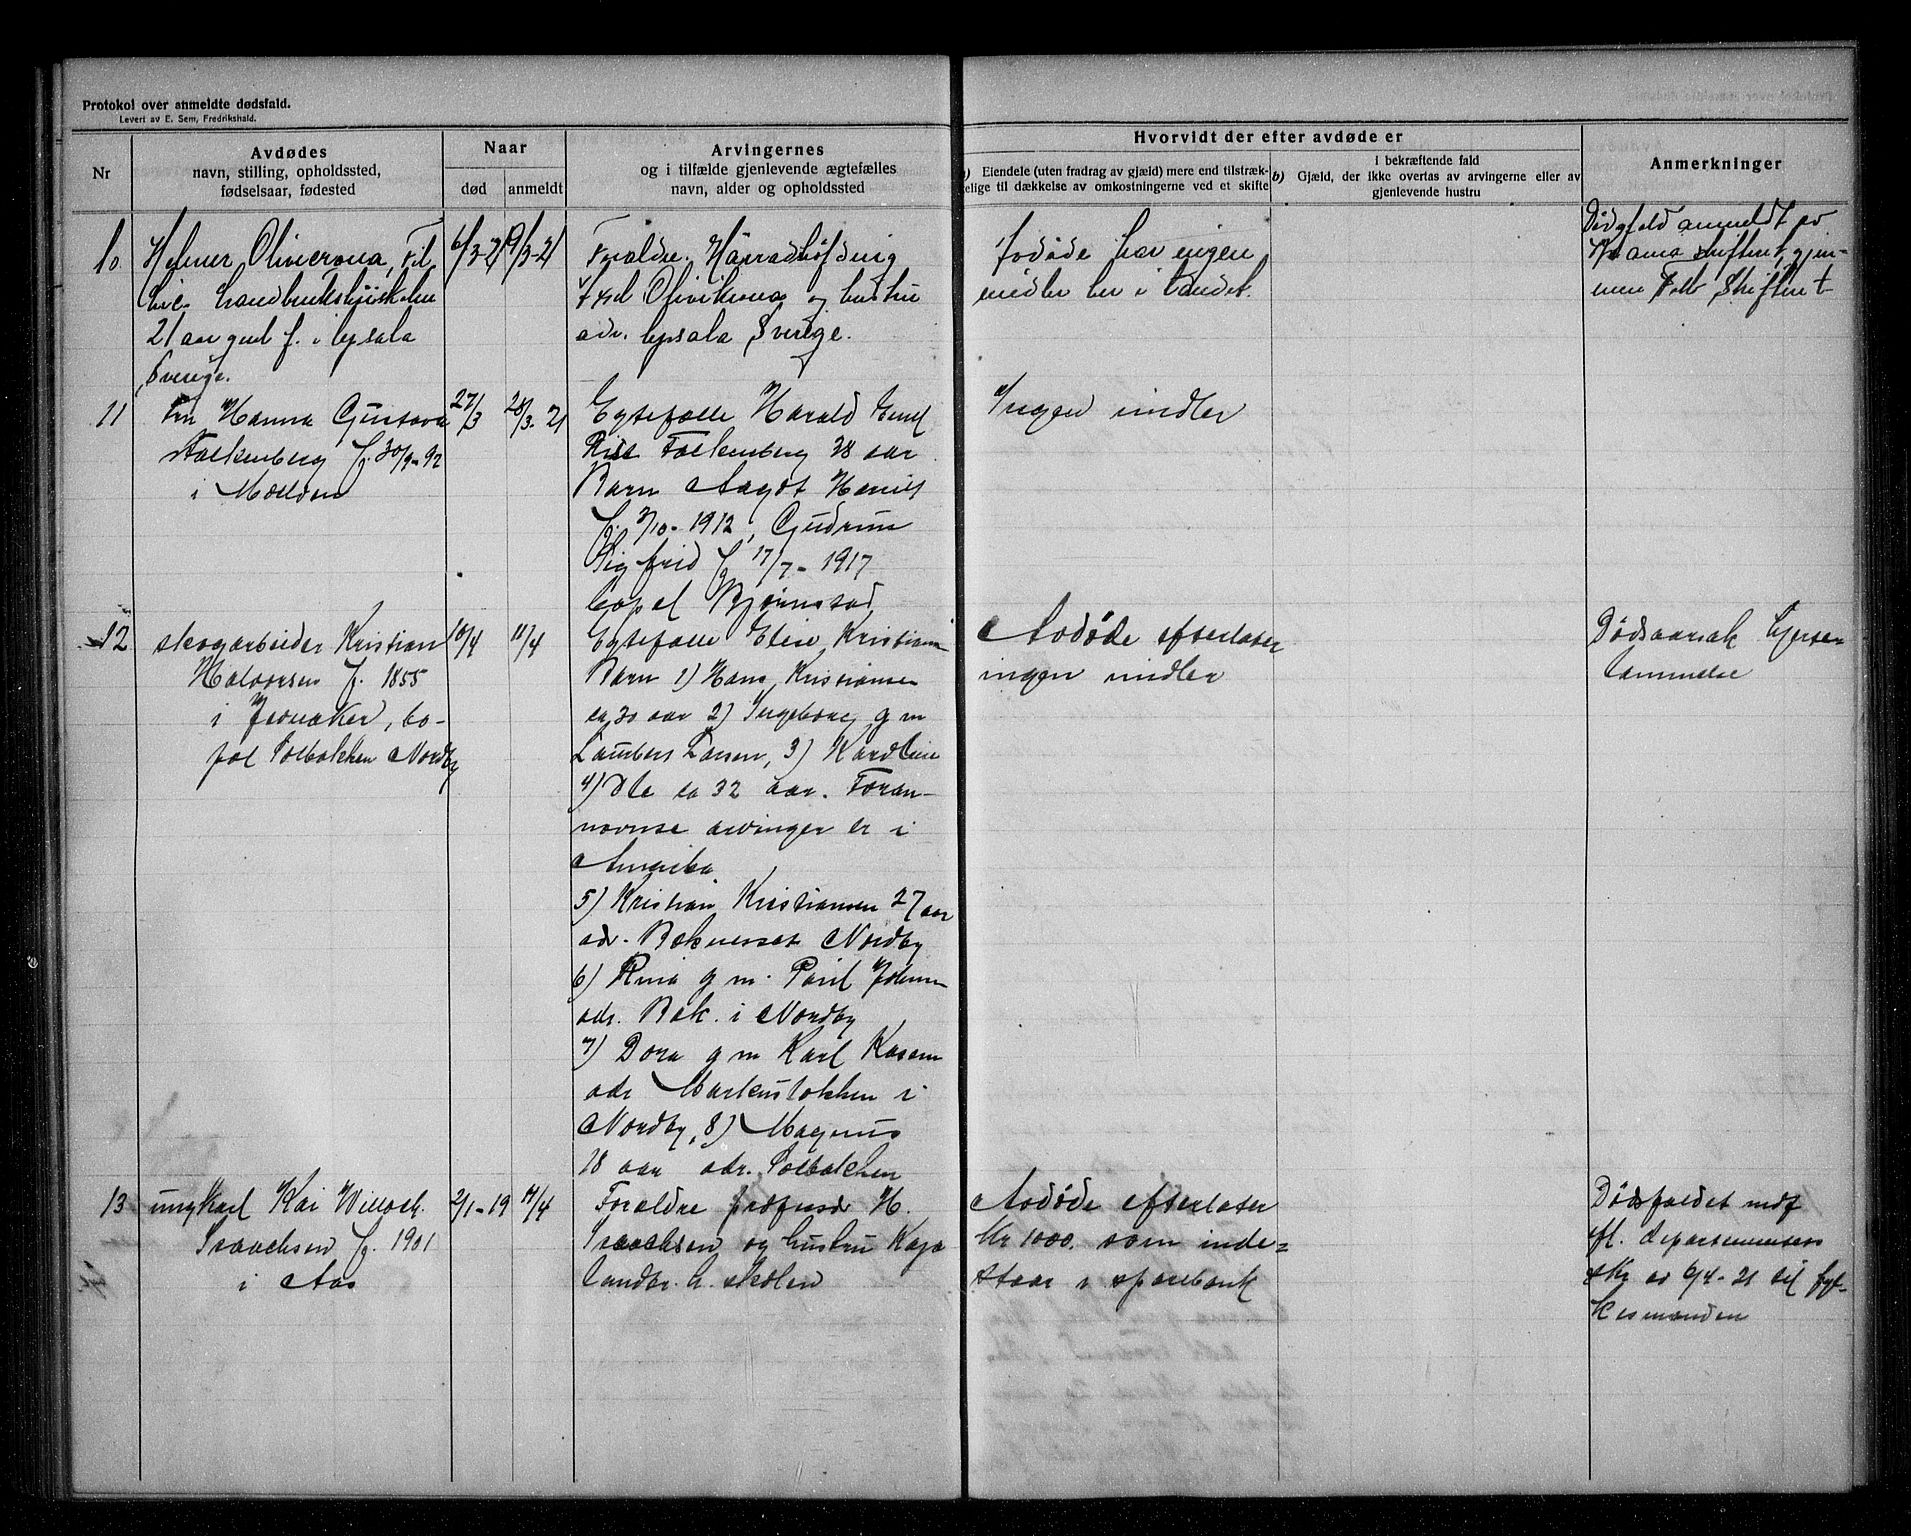 Protokol over anmeldte dødsfald.
Levert av E. Sem, Fredrikshald.
Nr
Avdødes
navn, stilling, opholdssted,
fødselsaar, fødested
Naar
død
anmeldt
Arvingernes
og i tilfælde gjenlevende ægtefælles
navn, alder og opholdssted
Hvorvidt der efter avdøde er
a) Eiendele (uten fradrag av gjæld) mere end tilstræk-
kelige til dækkelse av omkostningerne ved et skifte
b) I bekræftende fald
Gjæld, der ikke overtas av arvingerne eller av
gjenlevende hustru
Anmerkninger
10
Helmer Olivecrona,
landbrukshøiskolen
21 aar gml f. i Upsala
Sverige.
6/3-21
9/3-21
Foræld Häradshöfding
Axel Olivikrona og hustru
adr. Upsala Sverige.
Avdøde har ingen
midler her i landet.
Dødsfald anmeldt av
skifteret, gjen-
nem Skifteret
11
Fru Hanna Gustava
Falkenberg f. 30/9-92
i
27/3
28/3-21
Egtefælle Harald Emil
Falkenberg 28 aar
Barn Aagot
f. 2/10-1912, Gudrun
Sigfrid f 17/7-1917
bopel Bjørnstad
Ingen midler
12
skogarbeider Kristian
Halvorsen f. 1855
i Jevnaker, bo-
pæl Solbakken Nordby
10/4
11/4
Egtefælle Elise Kristiansen
Barn 1) Hans Kristiansen
ca 30 aar 2) Ingeborg g m
Lambert Larsen, 3) Karoline
4) Ole ca 32 aar. Foran-
nævnte arvinger er i
Amerika
5) Kristian Kristiansen 27 aar
adr. Nordby
6) g m. Paul
adr. Bæk. i Nordby
7) Dora g m Karl
adr i
Nordby, 8) Magnus
18 aar adr. Solbakken
Avdøde efterlater
ingen midler
Dødsaarsak
13
ungkarl Kai Willoch
Isaachsen f. 1901
i Aas
2/1-19
14/4
Forældre professor H.
Isaachsen og hustru Kaja
Landbr. h. skolen
Avdøde efterlater
Kr 1000. som inde-
staar i sparebank
Dødsfaldet
departementets
skr av 6/4-21 til fyl-
kesmanden